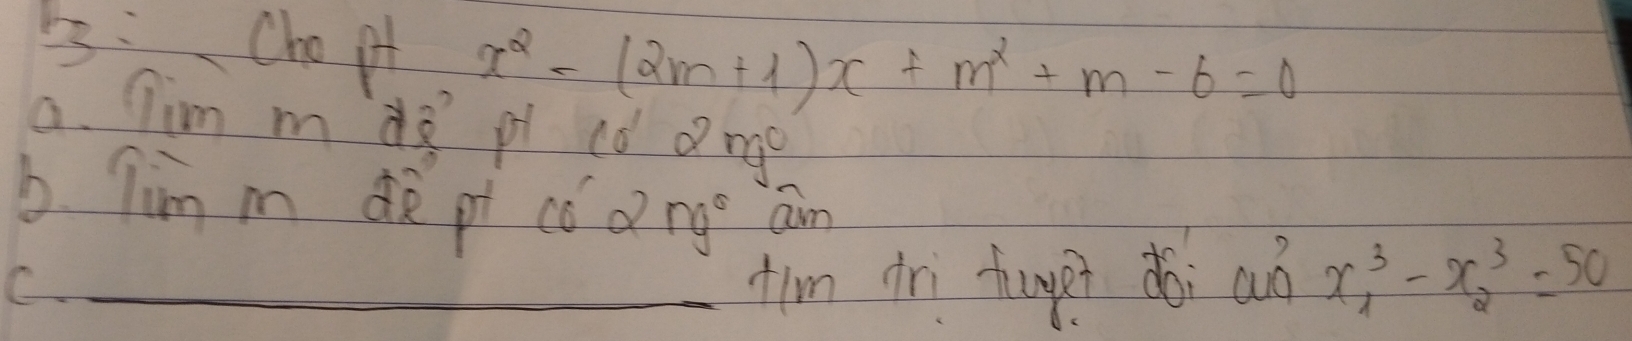 b3: Cho pt x² - (2m+1)x + m² + m - 6 = 0
a. Tìm m để pt có 2 ngº
b. Tìm m để pt có 2 ngº âm
c. ________ tìm trị tuyệt đối củả x₁³ - x₂³ = 50